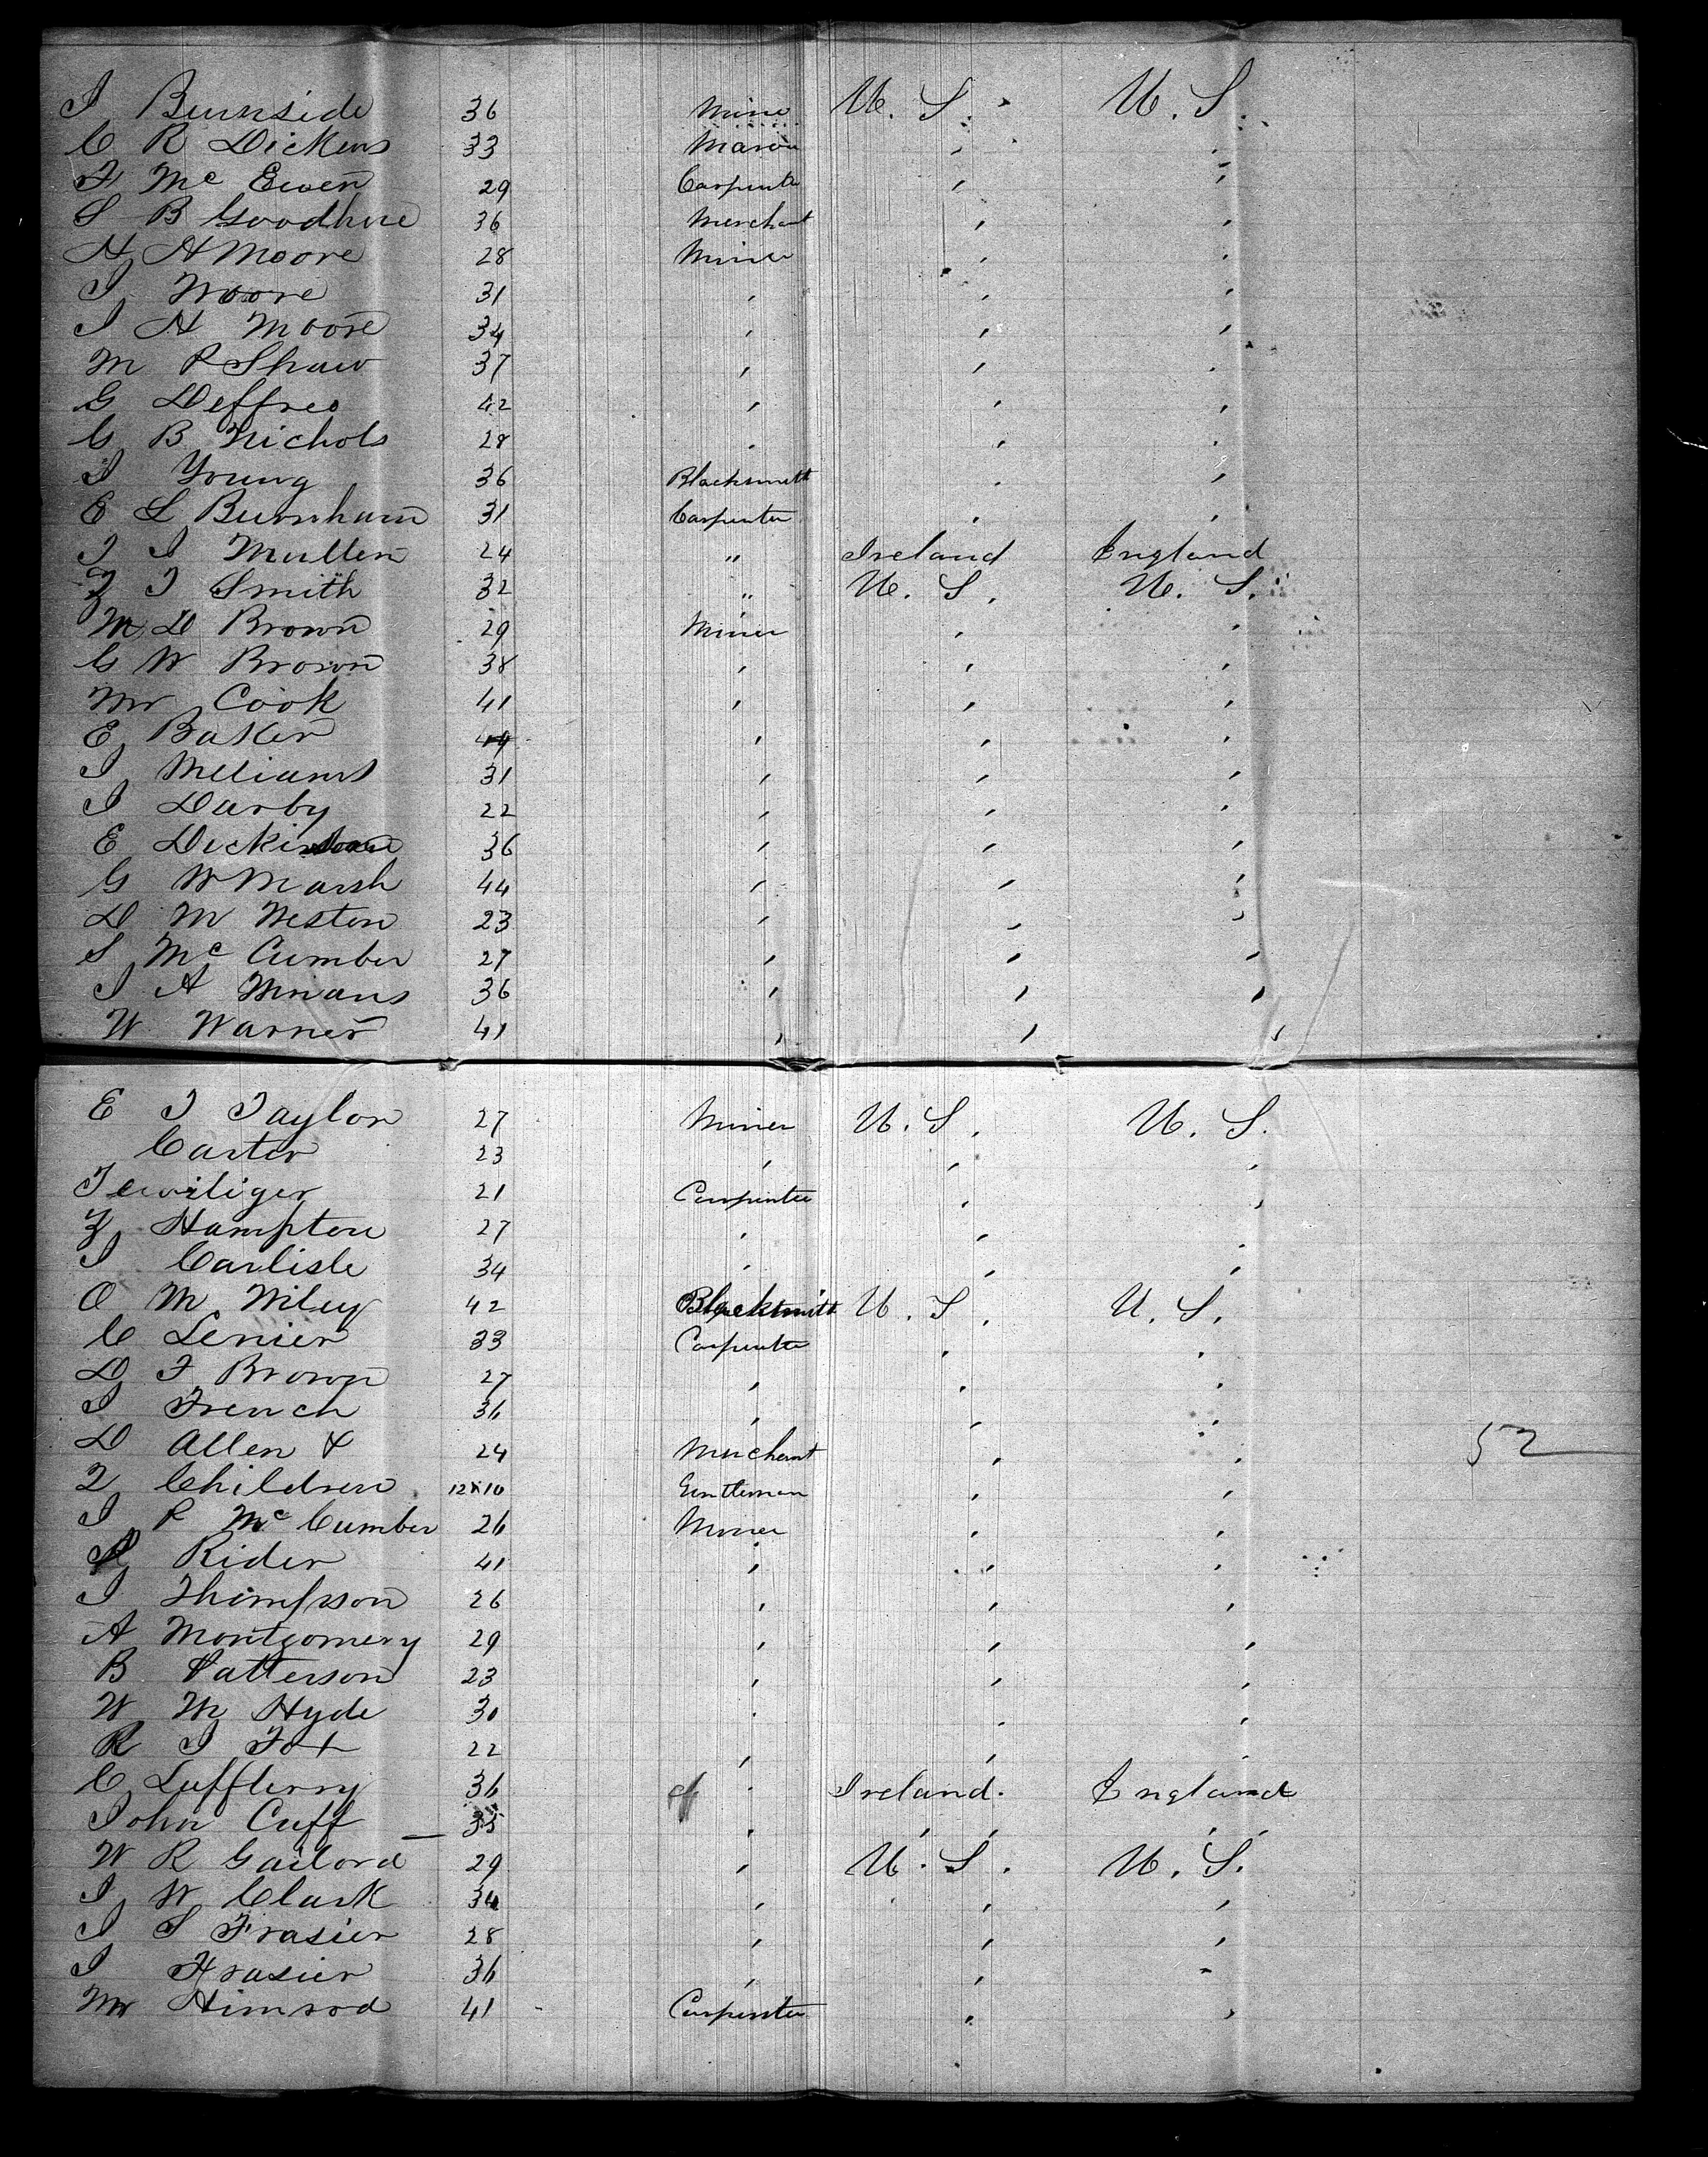 J Burnside 36 Mine U. S. U. S.
C R Dickens 33 Mason , ,
F Mc Ewen 29 Carpenter , ,
S B Goodhue 36 Merchant , ,
H H Moore 28 Miner , ,
J Moore 31 , , ,
J H Moore 34 , , ,
M P Shaw 37 , , ,
G Deffres 42 , , ,
G B Nichols 28 , , ,
J Young 36 Blacksmith , ,
E L Burnham 31 Carpenter , ,
J J Mullen 24 " Ireland England
Z T Smith 32 " U. S. U. S.
M D Brown 29 Miner , ,
G W Brown 38 , , ,
Mr Cook 41 , , ,
E Baker 49 , , ,
J 31 , , ,
J Darby 22 , , ,
E Dickinson 36 , , ,
G W Marsh 44 , , ,
D M Weston 23 , , ,
S Mc Cumber 27 , , ,
J A 36 , , ,
W Warner 41 , , ,
E T Taylor 27 Miner U. S. U. S.
Carter 23 , , ,
Tewiliger 21 Carpenter , ,
Z Hampton 27 , , ,
J Carlisle 34 , , ,
O M Wiley 42 Blacksmith U. S. U. S.
C Lenier 33 Carpenter , ,
D F Brown 27 , , ,
J French 36 , , ,
D Allen & 24 Merchant , , 52
2 Children 12 & 10 Gentleman , ,
J P Mc Cumber 26 Miner , ,
Rider 41 , , ,
J Thompson 26 , , ,
A Montgomery 29 , , ,
B Patterson 23 , , ,
W M Hyde 30 , , ,
R J Fox 22 , , ,
C Luffterry 36 , Ireland. England
John Cuff 35 , , , , ,
W R Gailord 29 , U. S. U. S.
J W Clark 34 , , ,
J S Frasier 28 , , ,
J Frasier 36 , , ,
Mr Himrod 41 Carpenter , ,